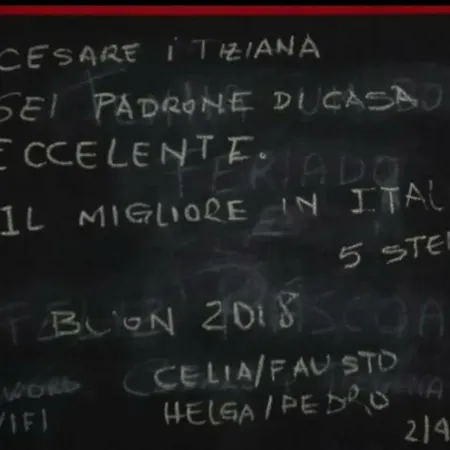 CESARE i TIZIANA
SEI PADRONE DI CASA
ECCELENTE.
IL MIGLIORE IN ITAL
5 STE
BUON 2018
CELIA/FAUSTO
HELGA/PEDRO
WORD
WIFI
2/4